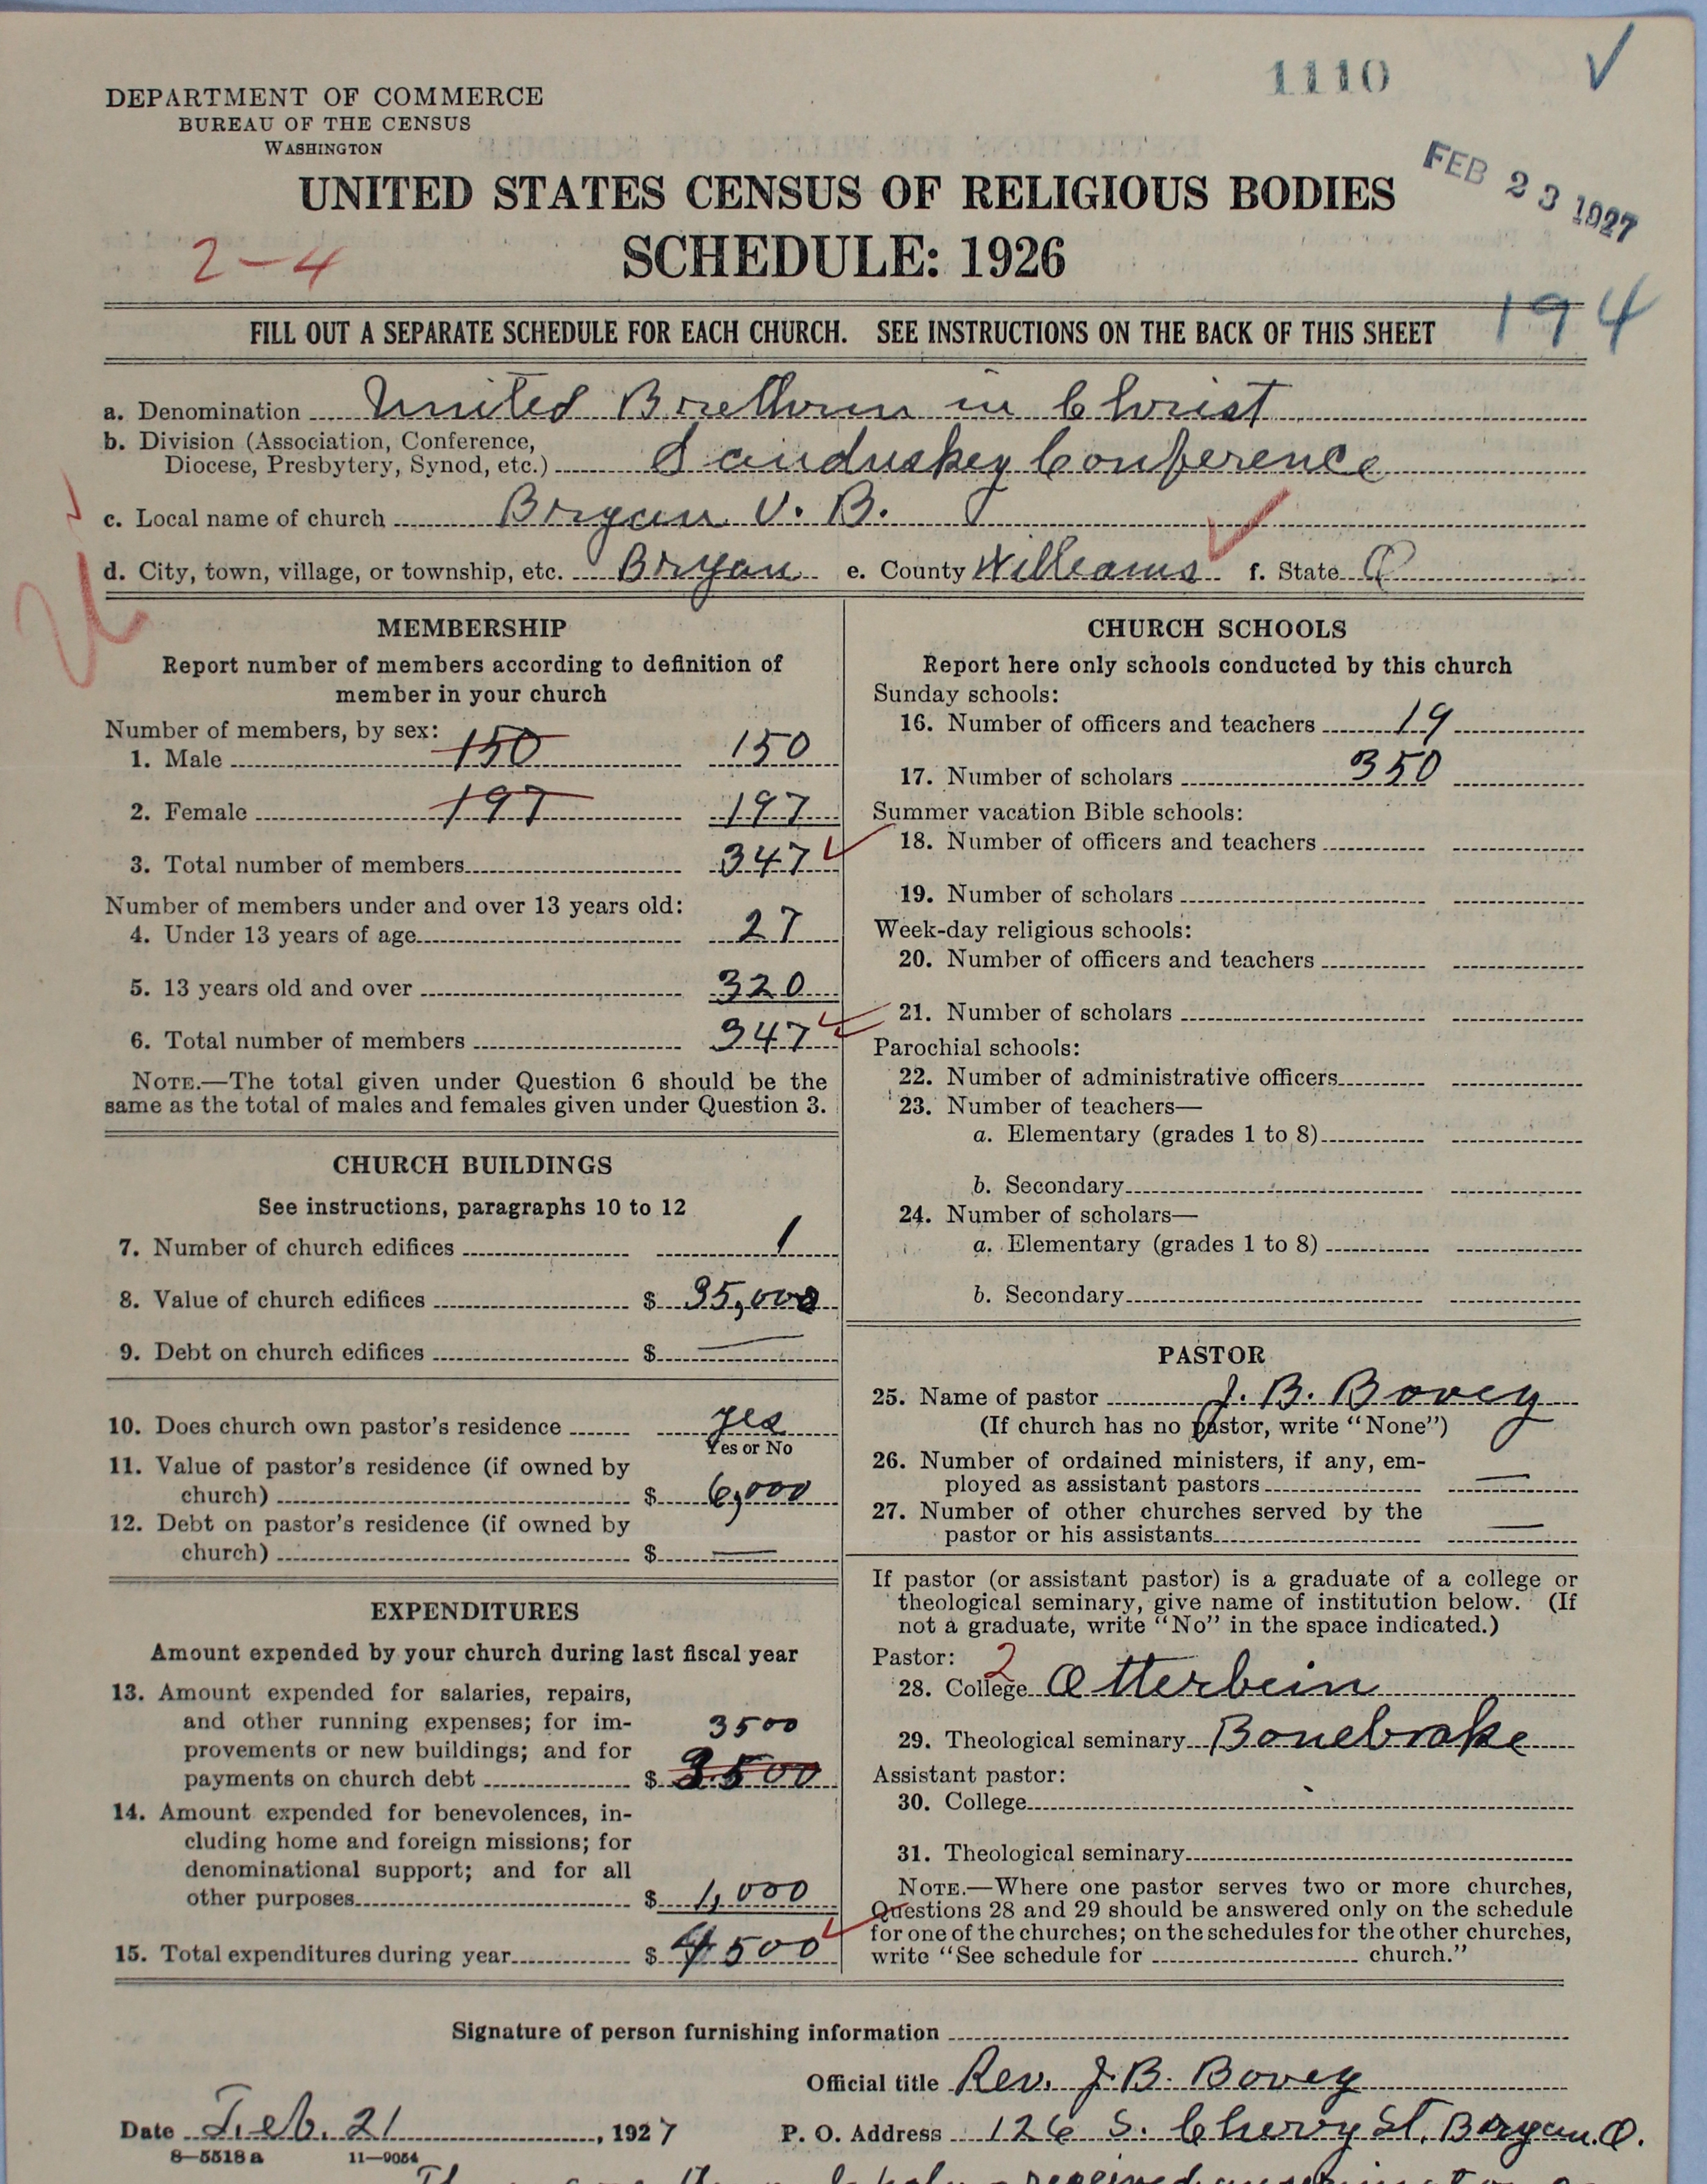 1110 ✓
DEPARTMENT OF COMMERCE
BUREAU OF THE CENSUS
WASHINGTON
FEB 23 1927
UNITED STATES CENSUS OF RELIGIOUS BODIES
2-4
SCHEDULE: 1926
FILL OUT A SEPARATE SCHEDULE FOR EACH CHURCH. SEE INSTRUCTIONS ON THE BACK OF THIS SHEET
194
a. Denomination United Brethren in Christ
b. Division (Association, Conference,
Diocese, Presbytery, Synod, etc.) Sanduskey Conference
c. Local name of church Bryan U. B.
d. City, town, village, or township, etc. Bryan e. County Williams f. State O
MEMBERSHIP
Report number of members according to definition of
member in your church
Number of members, by sex:
1. Male 150 150
2. Female 197 197
3. Total number of members 347
Number of members under and over 13 years old:
4. Under 13 years of age 27
5. 13 years old and over 320
6. Total number of members 347
NOTE.—The total given under Question 6 should be the
same as the total of males and females given under Question 3.
CHURCH BUILDINGS
See instructions, paragraphs 10 to 12
7. Number of church edifices 1
8. Value of church edifices $ 35,000
9. Debt on church edifices $ —
10. Does church own pastor's residence yes
Yes or No
11. Value of pastor's residence (if owned by
church) $ 6,000
12. Debt on pastor's residence (if owned by
church) $ —
EXPENDITURES
Amount expended by your church during last fiscal year
13. Amount expended for salaries, repairs,
and other running expenses; for im- 3500
provements or new buildings; and for
payments on church debt $ 3500
14. Amount expended for benevolences, in-
cluding home and foreign missions; for
denominational support; and for all
other purposes $ 1,000
15. Total expenditures during year $ 4500
CHURCH SCHOOLS
Report here only schools conducted by this church
Sunday schools:
16. Number of officers and teachers 19
17. Number of scholars 350
Summer vacation Bible schools:
18. Number of officers and teachers
19. Number of scholars
Week-day religious schools:
20. Number of officers and teachers
21. Number of scholars
Parochial schools:
22. Number of administrative officers
23. Number of teachers—
a. Elementary (grades 1 to 8)
b. Secondary
24. Number of scholars—
a. Elementary (grades 1 to 8)
b. Secondary
PASTOR
25. Name of pastor J. B. Bovey
(If church has no pastor, write "None")
26. Number of ordained ministers, if any, em-
ployed as assistant pastors —
27. Number of other churches served by the
pastor or his assistants —
If pastor (or assistant pastor) is a graduate of a college or
theological seminary, give name of institution below. (If
not a graduate, write "No" in the space indicated.)
Pastor: 2
28. College Otterbein
29. Theological seminary Bonebrake
Assistant pastor:
30. College
31. Theological seminary
NOTE.—Where one pastor serves two or more churches,
Questions 28 and 29 should be answered only on the schedule
for one of the churches; on the schedules for the other churches,
write "See schedule for church."
Signature of person furnishing information
Official title Rev. J. B. Bovey
Date Feb. 21, 1927 P. O. Address 126 S. Cherry St. Bryan. O.
8—5518 a 11—9054